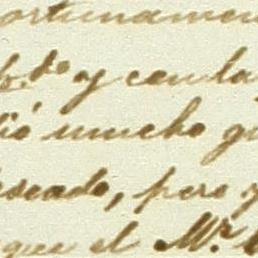 ortunamen
b.do y con la
ió mucho g
eseado, pero y
que el Mr.